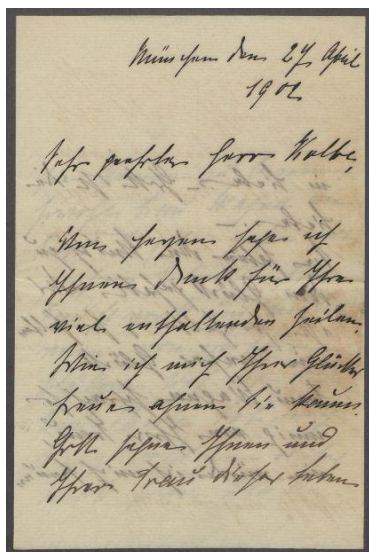 München den 27 April
1902
Sehr geehrter Herr Kolbe,
Von Herzen sage ich
Ihnen Dank für Ihre
viel enthaltenden Zeilen.
Wie ich mich Ihres Glückes
freue ahnen Sie kaum.
Gott segne Ihnen und
Ihrer Frau dieses Leben